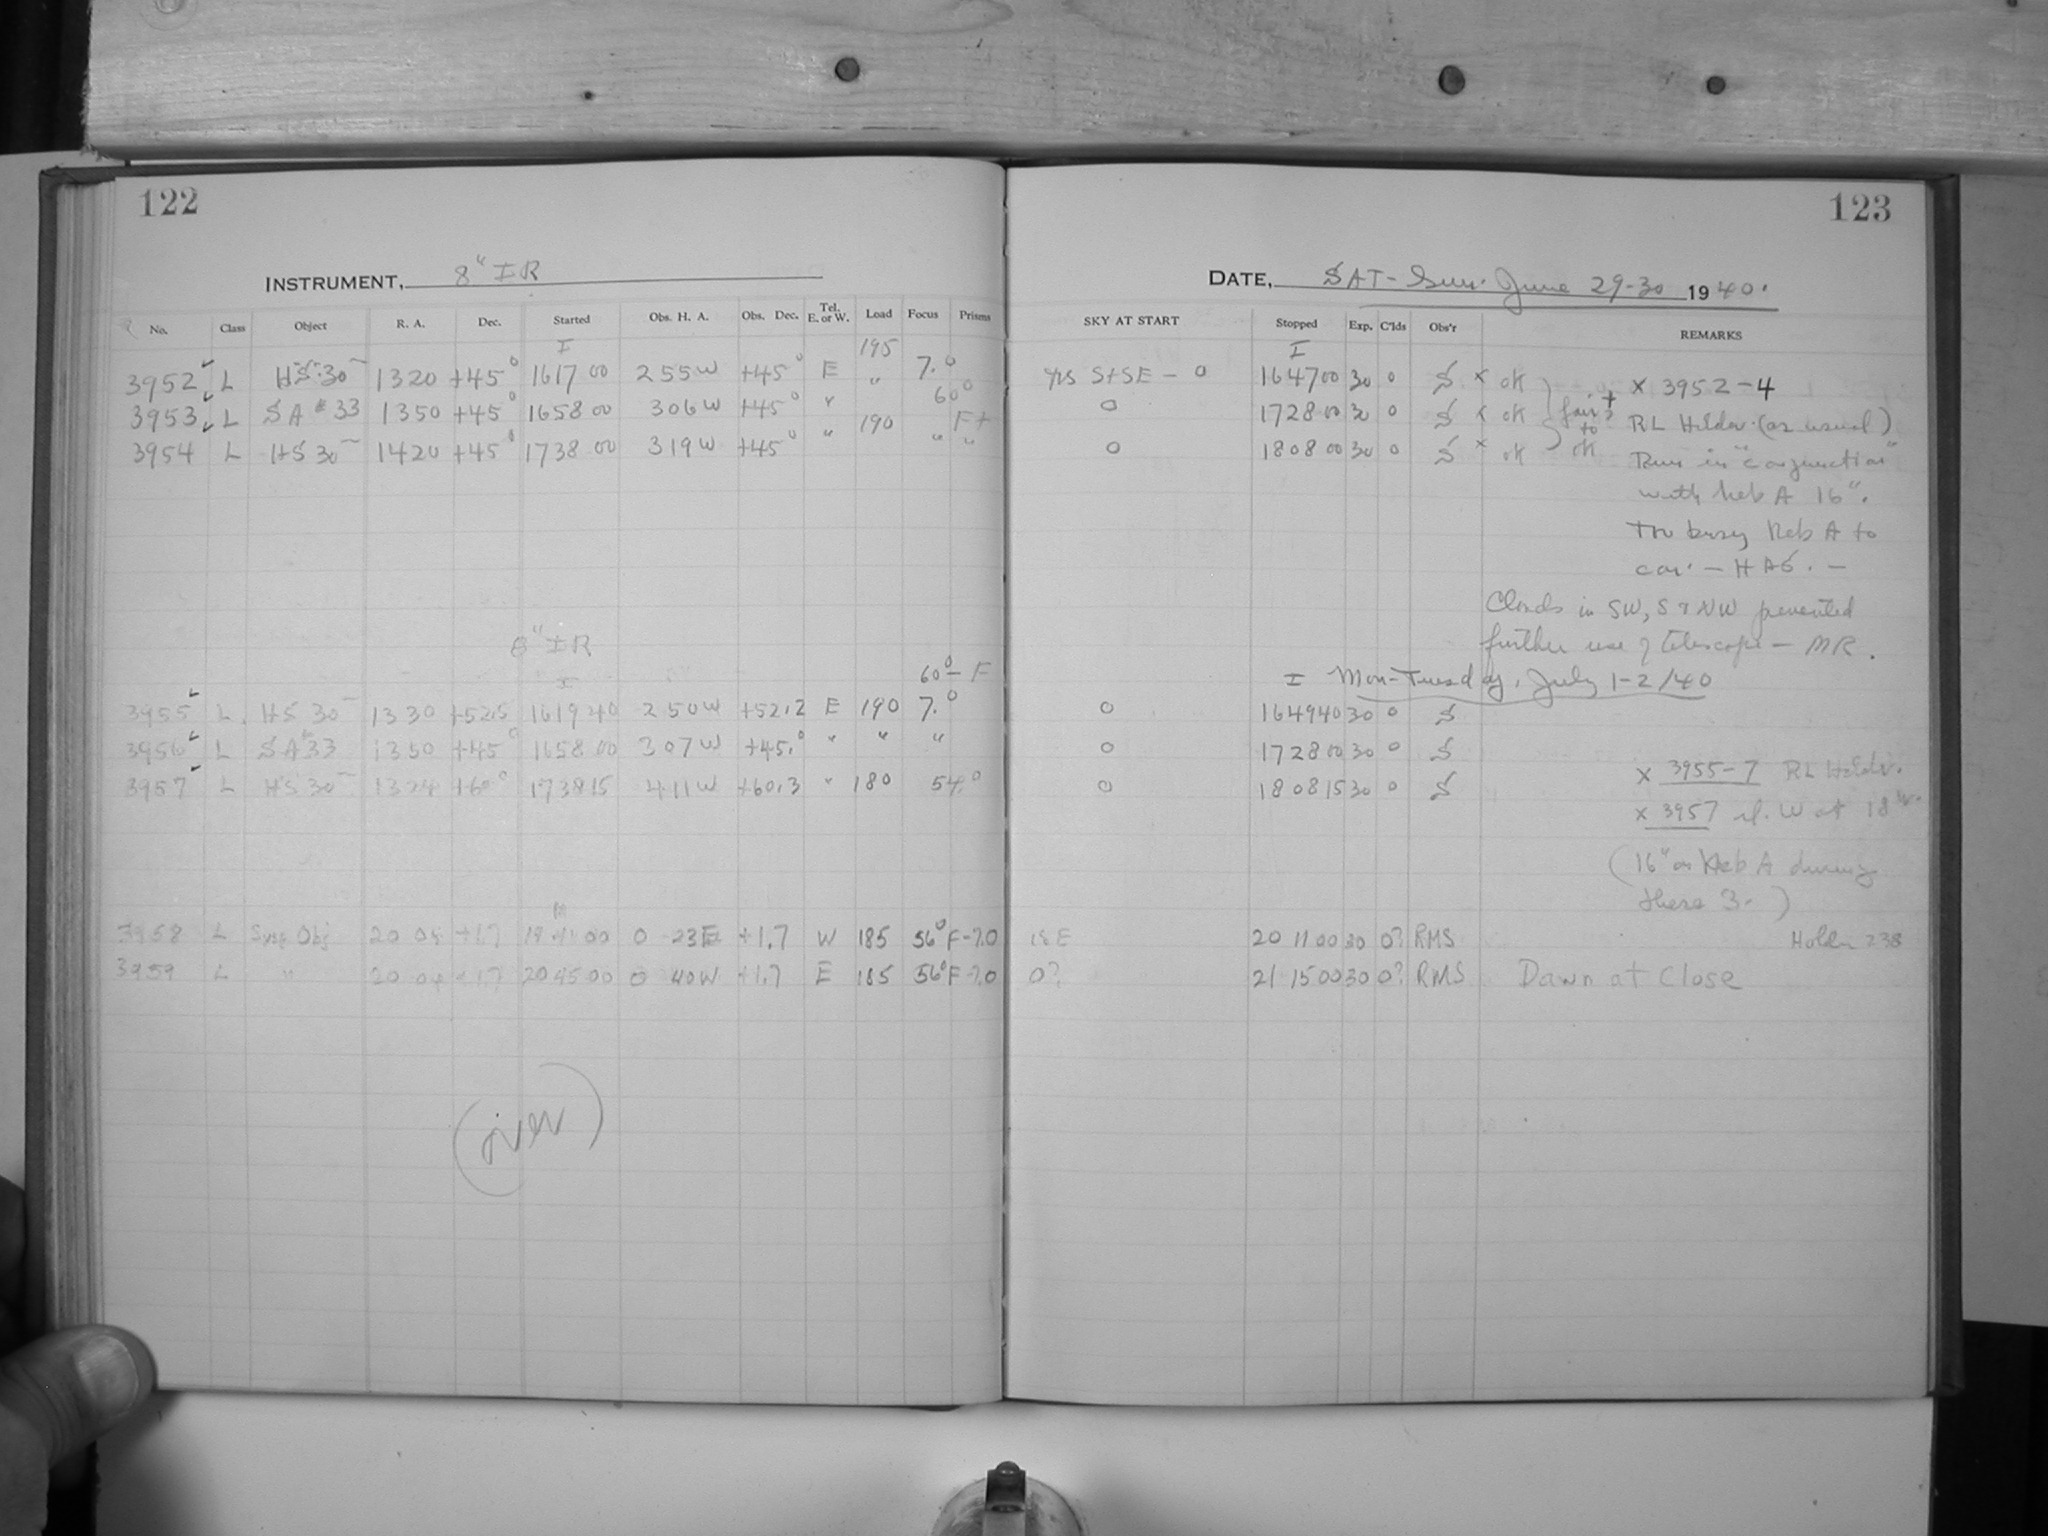 122
INSTRUMENT, 8" IR
No. Class Object R. A. Dec. Started Obs. H. A. Obs. Dec. Tel. E. or W. Load Focus Prisms
I 195
3952 L HS 30 1320 +45° 1617 00 255W +45° E " 7.0
3953 L SA #33 1350 +45° 1658 00 306W +45° " 190 60° F+
3954 L HS 30 1420 +45° 1738 00 319W +45° " " "
8" IR
I 60° - F
3955 L. HS 30 1330 +52.5 1619 40 250W +52.2 E 190 7.0
3956 L SA #33 1350 +45° 1658 00 307W +45.° " " "
3957 L HS 30 1324 +60° 1738 15 411W +60.3 " 180 54.°
3958 L Obj 20 04 +1.7 19 41 00 0 23E +1.7 W 185 56°F-7.0
3959 L " 20 04 +1.7 20 45 00 0 40W +1.7 E 185 56°F-7.0
(over)
123
DATE, SAT-Sun. June 29-30 1940.
SKY AT START Stopped Exp. C'lds Obs'r REMARKS
I
S+SE - 0 1647 00 30 0 S x OK x 3952-4
0 1728 00 30 0 S x OK fair + to OK RL Holder (as usual)
0 1808 00 30 0 S x OK Run in "conjunction"
with Neb A 16".
Too busy Neb A to
- HAS. -
Clouds in SW, S & NW prevented
further use of telescope - MR.
I Mon-Tuesday, July 1-2/40
0 1649 40 30 0 S
0 1728 00 30 0 S
x 3955-7 RL Holder.
0 1808 15 30 0 S
x 3957 W at 18
(16" on Neb A during
these 3.)
18 E 20 11 00 30 0? RMS Holder 238
0? 21 15 00 30 0? RMS Dawn at Close